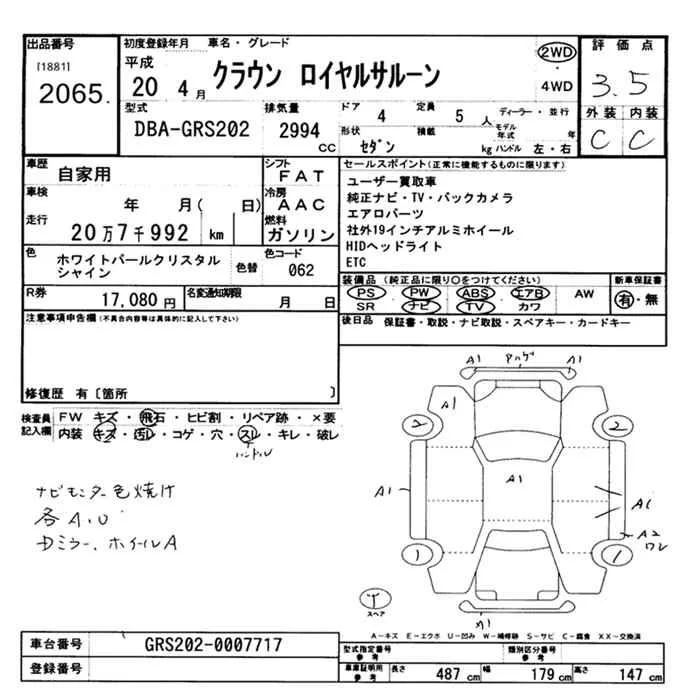 出品番号
[1881]
2065.
初度登録年月 車名・グレード
平成
20 4月
クラウン ロイヤルサルーン
2WD
・
4WD
評価点
3.5
外装 内装
C C
型式
DBA-GRS202
排気量
2994
CC
ドア 4 定員 5 人
形状 セダン 積載 kg
ディーラー・並行
モデル年式 年
ハンドル 左・右
車歴
自家用
シフト
FAT
車検
年 月( 日)
冷房
AAC
走行
20万7千992 km
燃料
ガソリン
色
ホワイトパールクリスタル
シャイン
色替
色コード
062
R券
17,080 円
名変通知期限
月 日
セールスポイント(正常に機能するものに限ります)
ユーザー買取車
純正ナビ・TV・バックカメラ
エアロパーツ
社外19インチアルミホイール
HIDヘッドライト
ETC
装備品 (純正品に限り○をつけてください)
PS ・ PW ・ ABS ・ エアB AW
SR ナビ TV カワ
新車保証書
有・無
後日品 保証書・取説・ナビ取説・スペアキー・カードキー
注意事項申告欄(不具合内容等は具体的に記入して下さい)
修復歴 有〔箇所 〕
検査員記入欄
FW キズ・飛石・ヒビ割・リペア跡・×要
内装 キズ・汚レ・コゲ・穴・スレ・キレ・破レ
ハンドル
ナビモニター色焼け
各A.U
Dミラー、ホイールA
A1 A1
A1
2 2
A1
A1 A1
A2
ワレ
1 1
T
スペア
A1
A-キズ E-エクボ U-凹み W-補修跡 S-サビ C-腐食 XX-交換済
車台番号
GRS202-0007717
登録番号
型式指定番号
参考
類別区分番号
参考
車庫証明用
参考
長さ 487 cm 幅 179 cm 高さ 147 cm